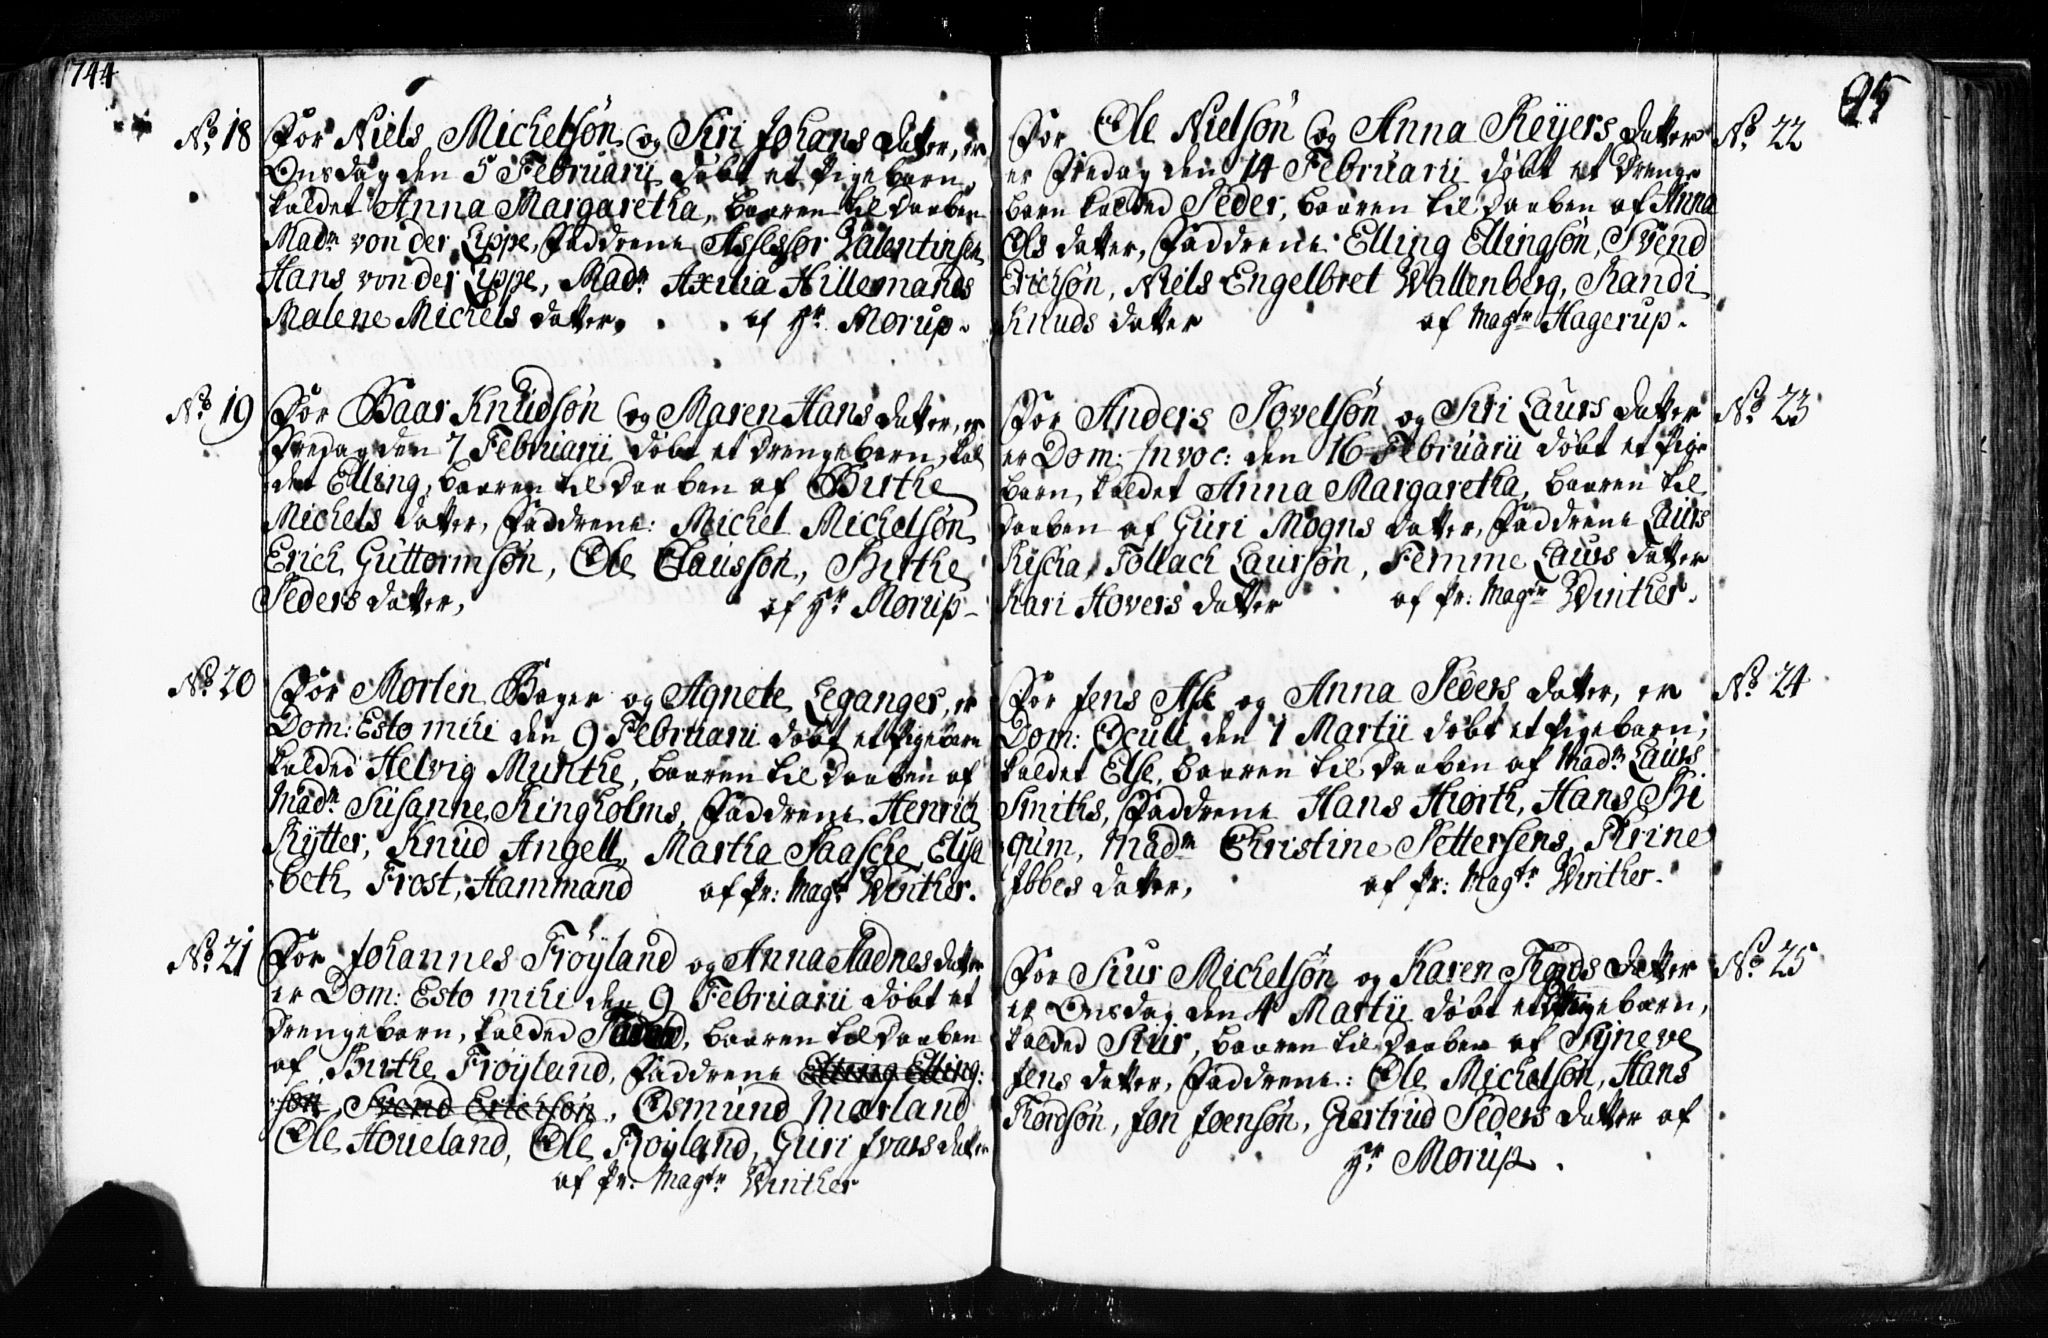 1744
No 18
For Niels Michelsön og Siri Johans datter, er
Onsdag den 5 Februarii döbt et Pigebarn
kaldet Anna Margaretha, baaren til daaben
Madm von der Lippe, Faddrene Assessor Valentinsen
Hans von der Lippe, Madm Axilia Hillemands
Malene Michels datter, af Hr Mörup.
No 19
For Baar Knudsön og Maren Hans datter, er
Fredag den 7 Februarii döbt et drengebarn, kal
det Elling, baaren til daaben af Birthe
Michels datter, Faddrene: Michel Michelsön
Erich Guttormsön, Ole Clausson, Birthe
Peders datter, af Hr Mörup
No 20
For Morten Bager og Agnete Leganger, er
Dom: Esto mihi den 9 Februarii döbt et Pigebarn
kalded Helvig Munthe, baaren til daaben af
Madm Susanne Ringholms, Faddrene Henrich
Rÿtter, Knud Angell, Martha Paasche, Elisa
beth Frost, Hammand af Pr: Magtr Winther.
No 21
For Johannes Fröÿland og Anna Aadnes datter
er Dom: Esto mihi den 9 Februarii döbt et
drengebarn, kalded baaren til daaben
af Birthe Fröÿland, Faddrene Elling Elling:
son, Svend Erichsön, Osmund Marland
Ole Houeland, Ole Fröÿland, Guri Ivars datter
af Pr: Magtr Winther
95
No 22
For Ole Nielsön og Anna Reÿers datter
er Fredag den 14 Februarii döbt et drenge
barn kalded Peder, baaren til daaben af Anna
Ols datter, Faddrene Elling Ellingsön, Svend
Erichsön, Niels Engelbret Wallenberg, Randi
Knuds datter af Magtr Hagerup.
No 23
For Anders Povelsön og Siri Laurs datter
er Dom: Invoc: den 16 Februarii döbt et Pige
barn, kaldet Anna Margaretha, baaren til
daaben af Guri Mogns datter, Faddrene Laurs
Rischa, Tollach Laursön, Femme Laurs datter
Kari Hovers datter af Pr: Magtr Winther.
No 24
For Jens Ask og Anna Peders datter, er
Dom: Oculi den 1 Martii döbt et Pigebarn,
kaldet Else, baaren til daaben af Madm Laurs
Smiths, Faddrene Hans Hiorth, Hans Bi
gum, Madm Christine Pettersens, Trine
Ibbes datter, af Pr: Magtr Winther.
No 25
For Siur Michelsön og Karen Thords datter
er Onsdag den 4 Martii döbt et Pigebarn,
kalded Siur, baaren til daaben af Sÿneve
Jens datter, Faddrene: Ole Michelsön, Hans
Thordsön, Jon Joensön, Giertrud Peders datter af
Hr Mörup.